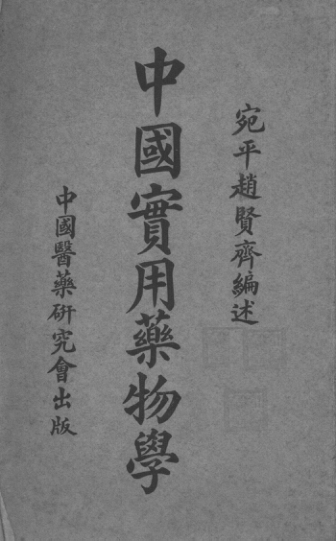 宛平趙賢齊編述
中國實用藥物學
中國醫藥硏究會出版